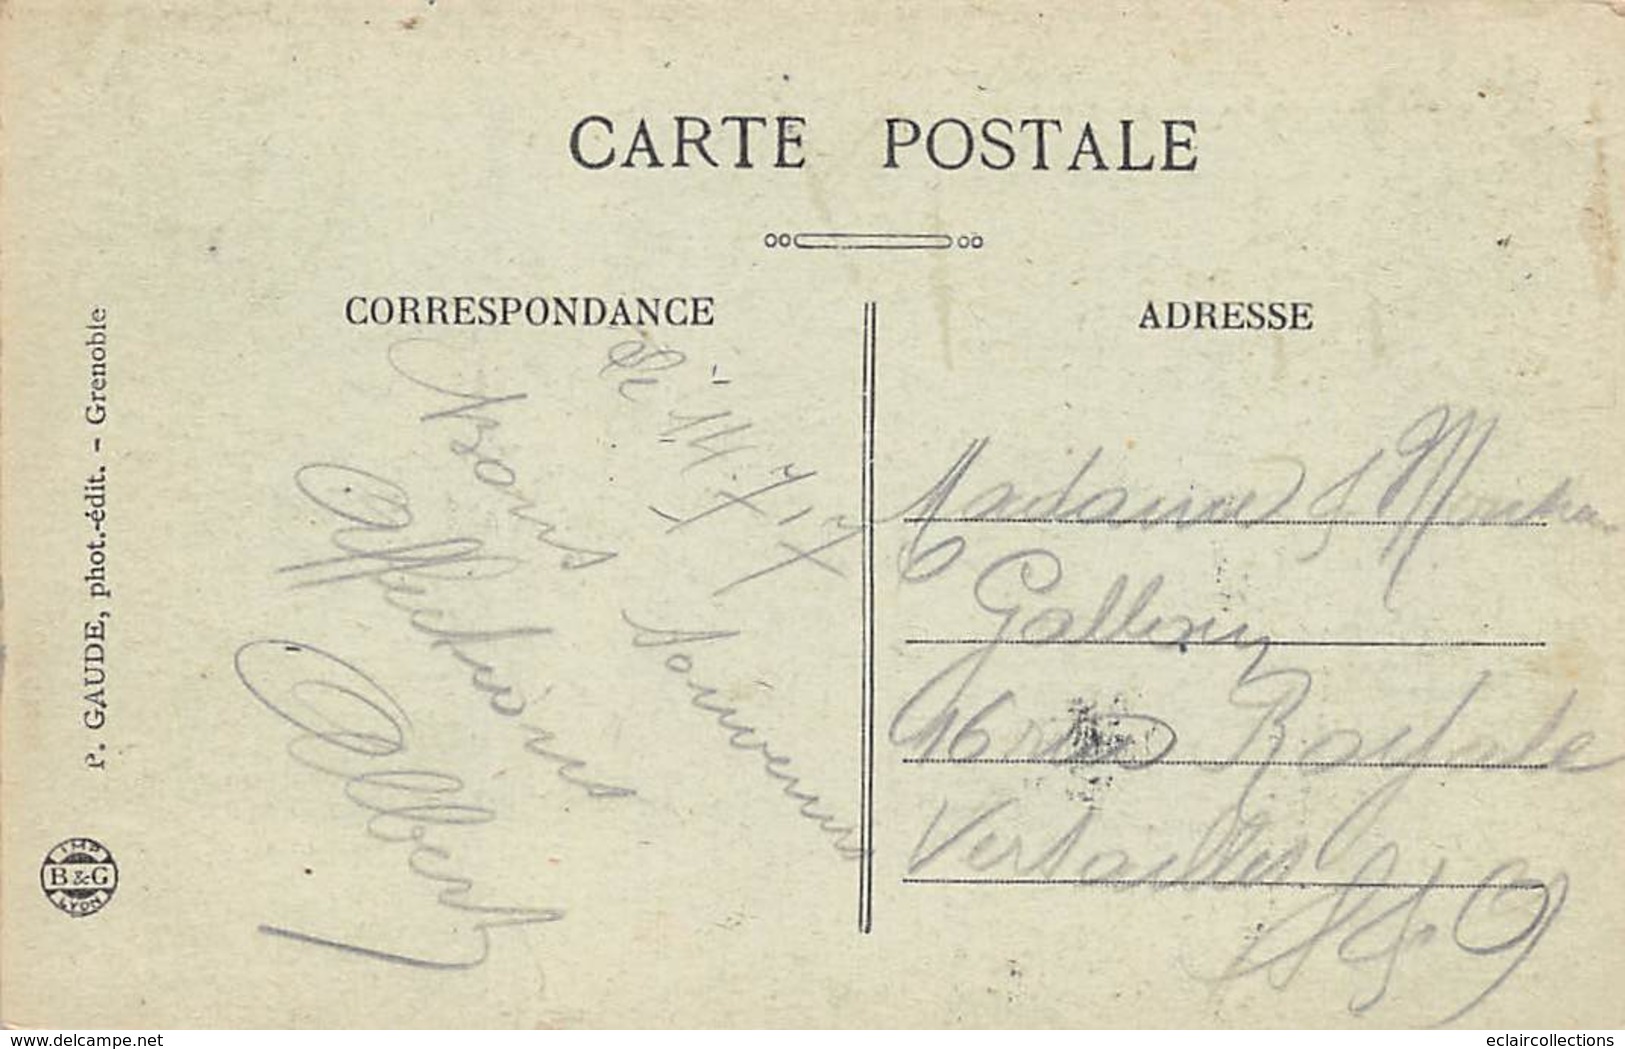 CARTE POSTALE
CORRESPONDANCE
ADRESSE
Le 14-7-17
Bons Souvenirs
Affections
Albert
Madame &
Gallouin
16 rue Royale
Versailles
S & O
P. GAUDE, phot.-édit. - Grenoble
IMP
B & G
LYON
www.delcampe.net
eclaircollections